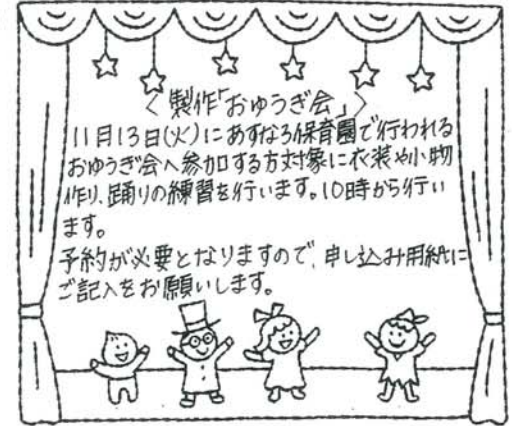 ＜製作「おゆうぎ会」＞
11月13日(火)にあすなろ保育園で行われる
おゆうぎ会へ参加する方対象に衣装や小物
作り、踊りの練習を行います。10時から行い
ます。
予約が必要となりますので、申し込み用紙に
ご記入をお願いします。